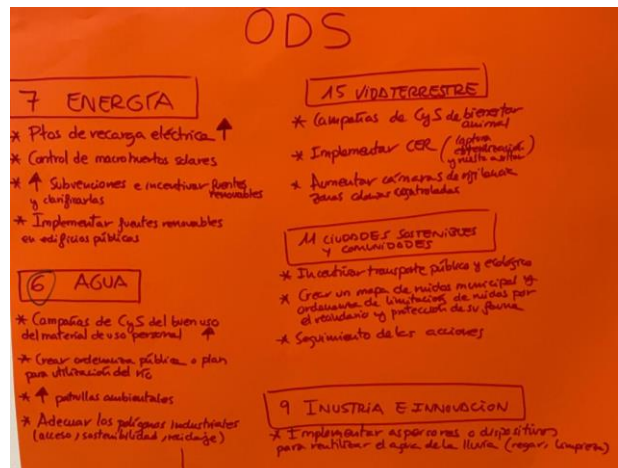 ODS
7 ENERGÍA
* Ptos de recarga eléctrica ↑
* Control de macrohuertos solares
* ↑ Subvenciones e incentivar fuentes
renovables
y clarificarlas
* Implementar fuentes renovables
en edificios públicos
6 AGUA
* Campañas de CyS del buen uso
del material de uso personal ↑
* Crear ordenanza pública o plan
para utilización del río
* ↑ patrullas ambientales
* Adecuar los polígonos industriales
(acceso, sostenibilidad, reciclaje)
15 VIDA TERRESTRE
* Campañas de CyS de bienestar
animal
* Implementar CER (captura
esterilización
y vuelta a
* Aumentar cámaras de vigilancia
zonas controladas
11 CIUDADES SOSTENIBLES
Y COMUNIDADES
* Incentivar transporte público y ecológico
* Crear un mapa de ruidos municipal y
ordenanza de limitación de ruidos por
el vecindario y protección de su fauna
* Seguimiento de las acciones
9 INUSTRIA E INNOVACION
* Implementar aspersores o dispositivos
para reutilizar el agua de la lluvia (regar, limpieza)